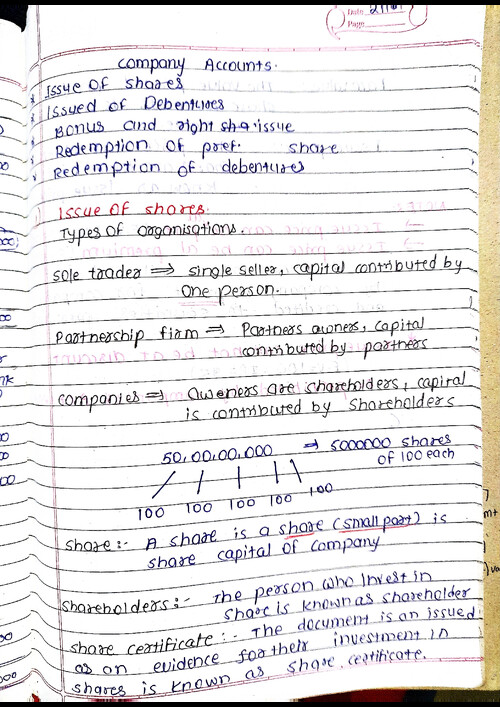 Date 
Page
Company Accounts.
* Issue of shares
* Issued of Debentures
* Bonus and right sha issue
* Redemption of pref. share
* Redemption of debentures
Issue of shares.
Types of organisations.
Sole trader ⇒ single seller, capital contributed by
one person.
Partnership firm ⇒ Partners owners, capital
contributed by partners
Companies ⇒ Oweners are shareholders, capital
is contributed by Shareholders
50,00,00,000 ⇒ 5000000 shares
of 100 each
100 100 100 100 100
Share:- A share is a share (small part) is
share capital of company
Shareholders:- The person who invest in
share is known as shareholder
Share certificate:- The document is an issued
as an evidence for their investment in
shares is known as share certificate.